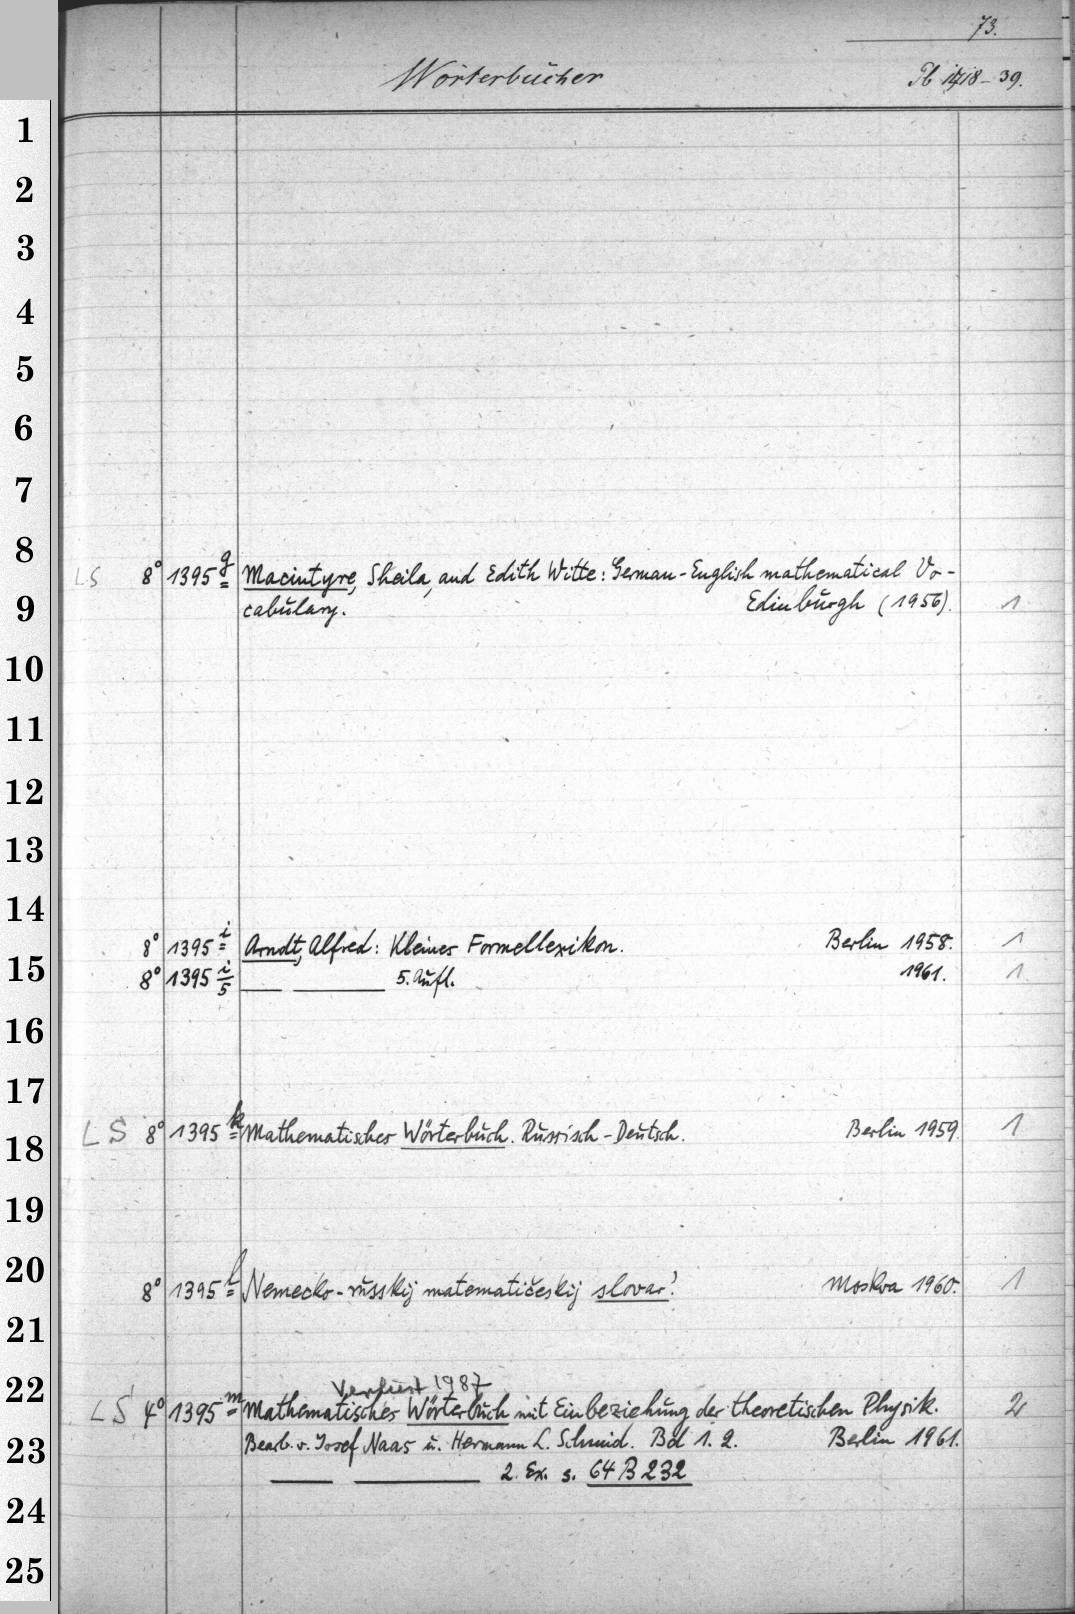 73.
Wörterbücher Pb 1418-39.
1
2
3
4
5
6
7
8
LS 8° 1395 g Macintyre, Sheila, and Edith Witte: German-English mathematical Vo-
9 cabulary. Edinburgh (1956). 1
10
11
12
13
14
8° 1395 i Arndt, Alfred: Kleines Formellexikon. Berlin 1958. 1
15 8° 1395 i/5 — — 5. Aufl. 1961. 1
16
17
LS 8° 1395 k Mathematisches Wörterbuch. Russisch-Deutsch. Berlin 1959. 1
18
19
20
8° 1395 l Nemecko-russkij matematičeskij slovar'. Moskva 1960. 1
21
22 Verlust 1987
LS 4° 1395 m Mathematisches Wörterbuch mit Einbeziehung der theoretischen Physik. 2
23 Bearb. v. Josef Naas u. Hermann L. Schmid. Bd 1. 2. Berlin 1961.
— — 2. Ex. s. 64 B 232
24
25